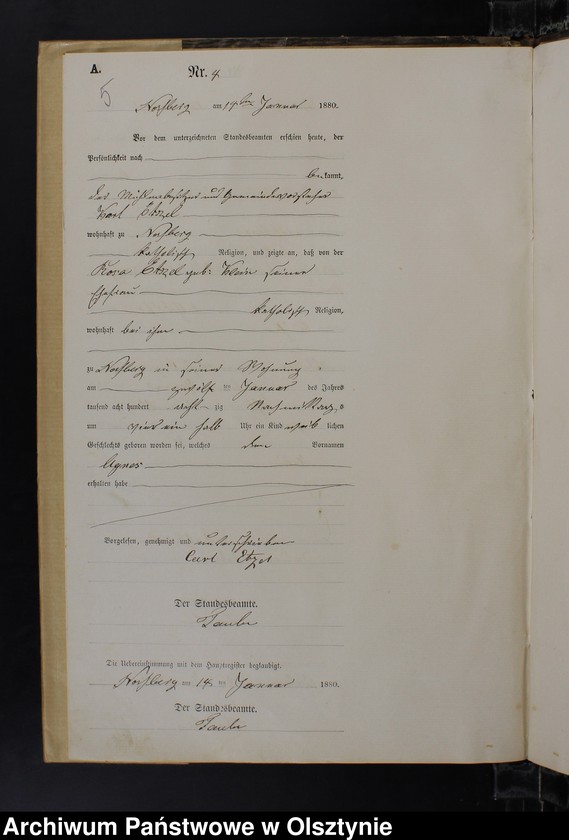 A.
Nr. 4
5
am 14ten Januar 1880.
Vor dem unterzeichneten Standesbeamten erschien heute, der
Persönlichkeit nach
bekannt,
der Mühlenbesitzer und Gemeindevorsteher
Karl Etzel
wohnhaft zu
katholischer Religion, und zeigte an, daß von der
Rosa Etzel geb. Klein seiner
Ehefrau
katholischer Religion,
wohnhaft bei ihm
zu in seiner Wohnung
am zwölften Januar des Jahres
tausend acht hundert acht zig Nachmittags
um vier ein halb Uhr ein Kind weib lichen
Geschlechts geboren worden sei, welches den Vornamen
Agnes
erhalten habe
Vorgelesen, genehmigt und unterschrieben
Carl Etzel
Der Standesbeamte.
Die Uebereinstimmung mit dem Hauptregister beglaubigt.
am 14 ten Januar 1880.
Der Standesbeamte.
Archiwum Państwowe w Olsztynie